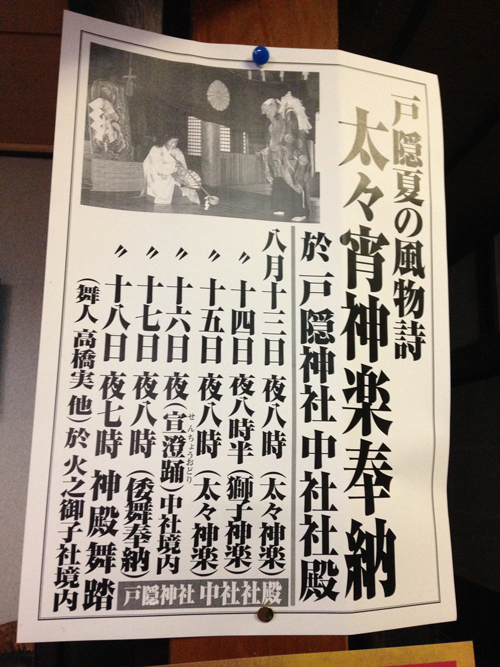 戸隠夏の風物詩
太々宵神楽奉納
於 戸隠神社 中社社殿
八月十三日 夜八時 (太々神楽)
〃 十四日 夜八時半 (獅子神楽)
〃 十五日 夜八時 (太々神楽)
〃 十六日 夜 (宣澄踊 中社境内
せんちょうおどり
〃 十七日 夜八時 (倭舞奉納)
〃 十八日 夜七時 神殿舞踏
(舞人 高橋実 他) 於 火之御子社境内
戸隠神社 中社社殿